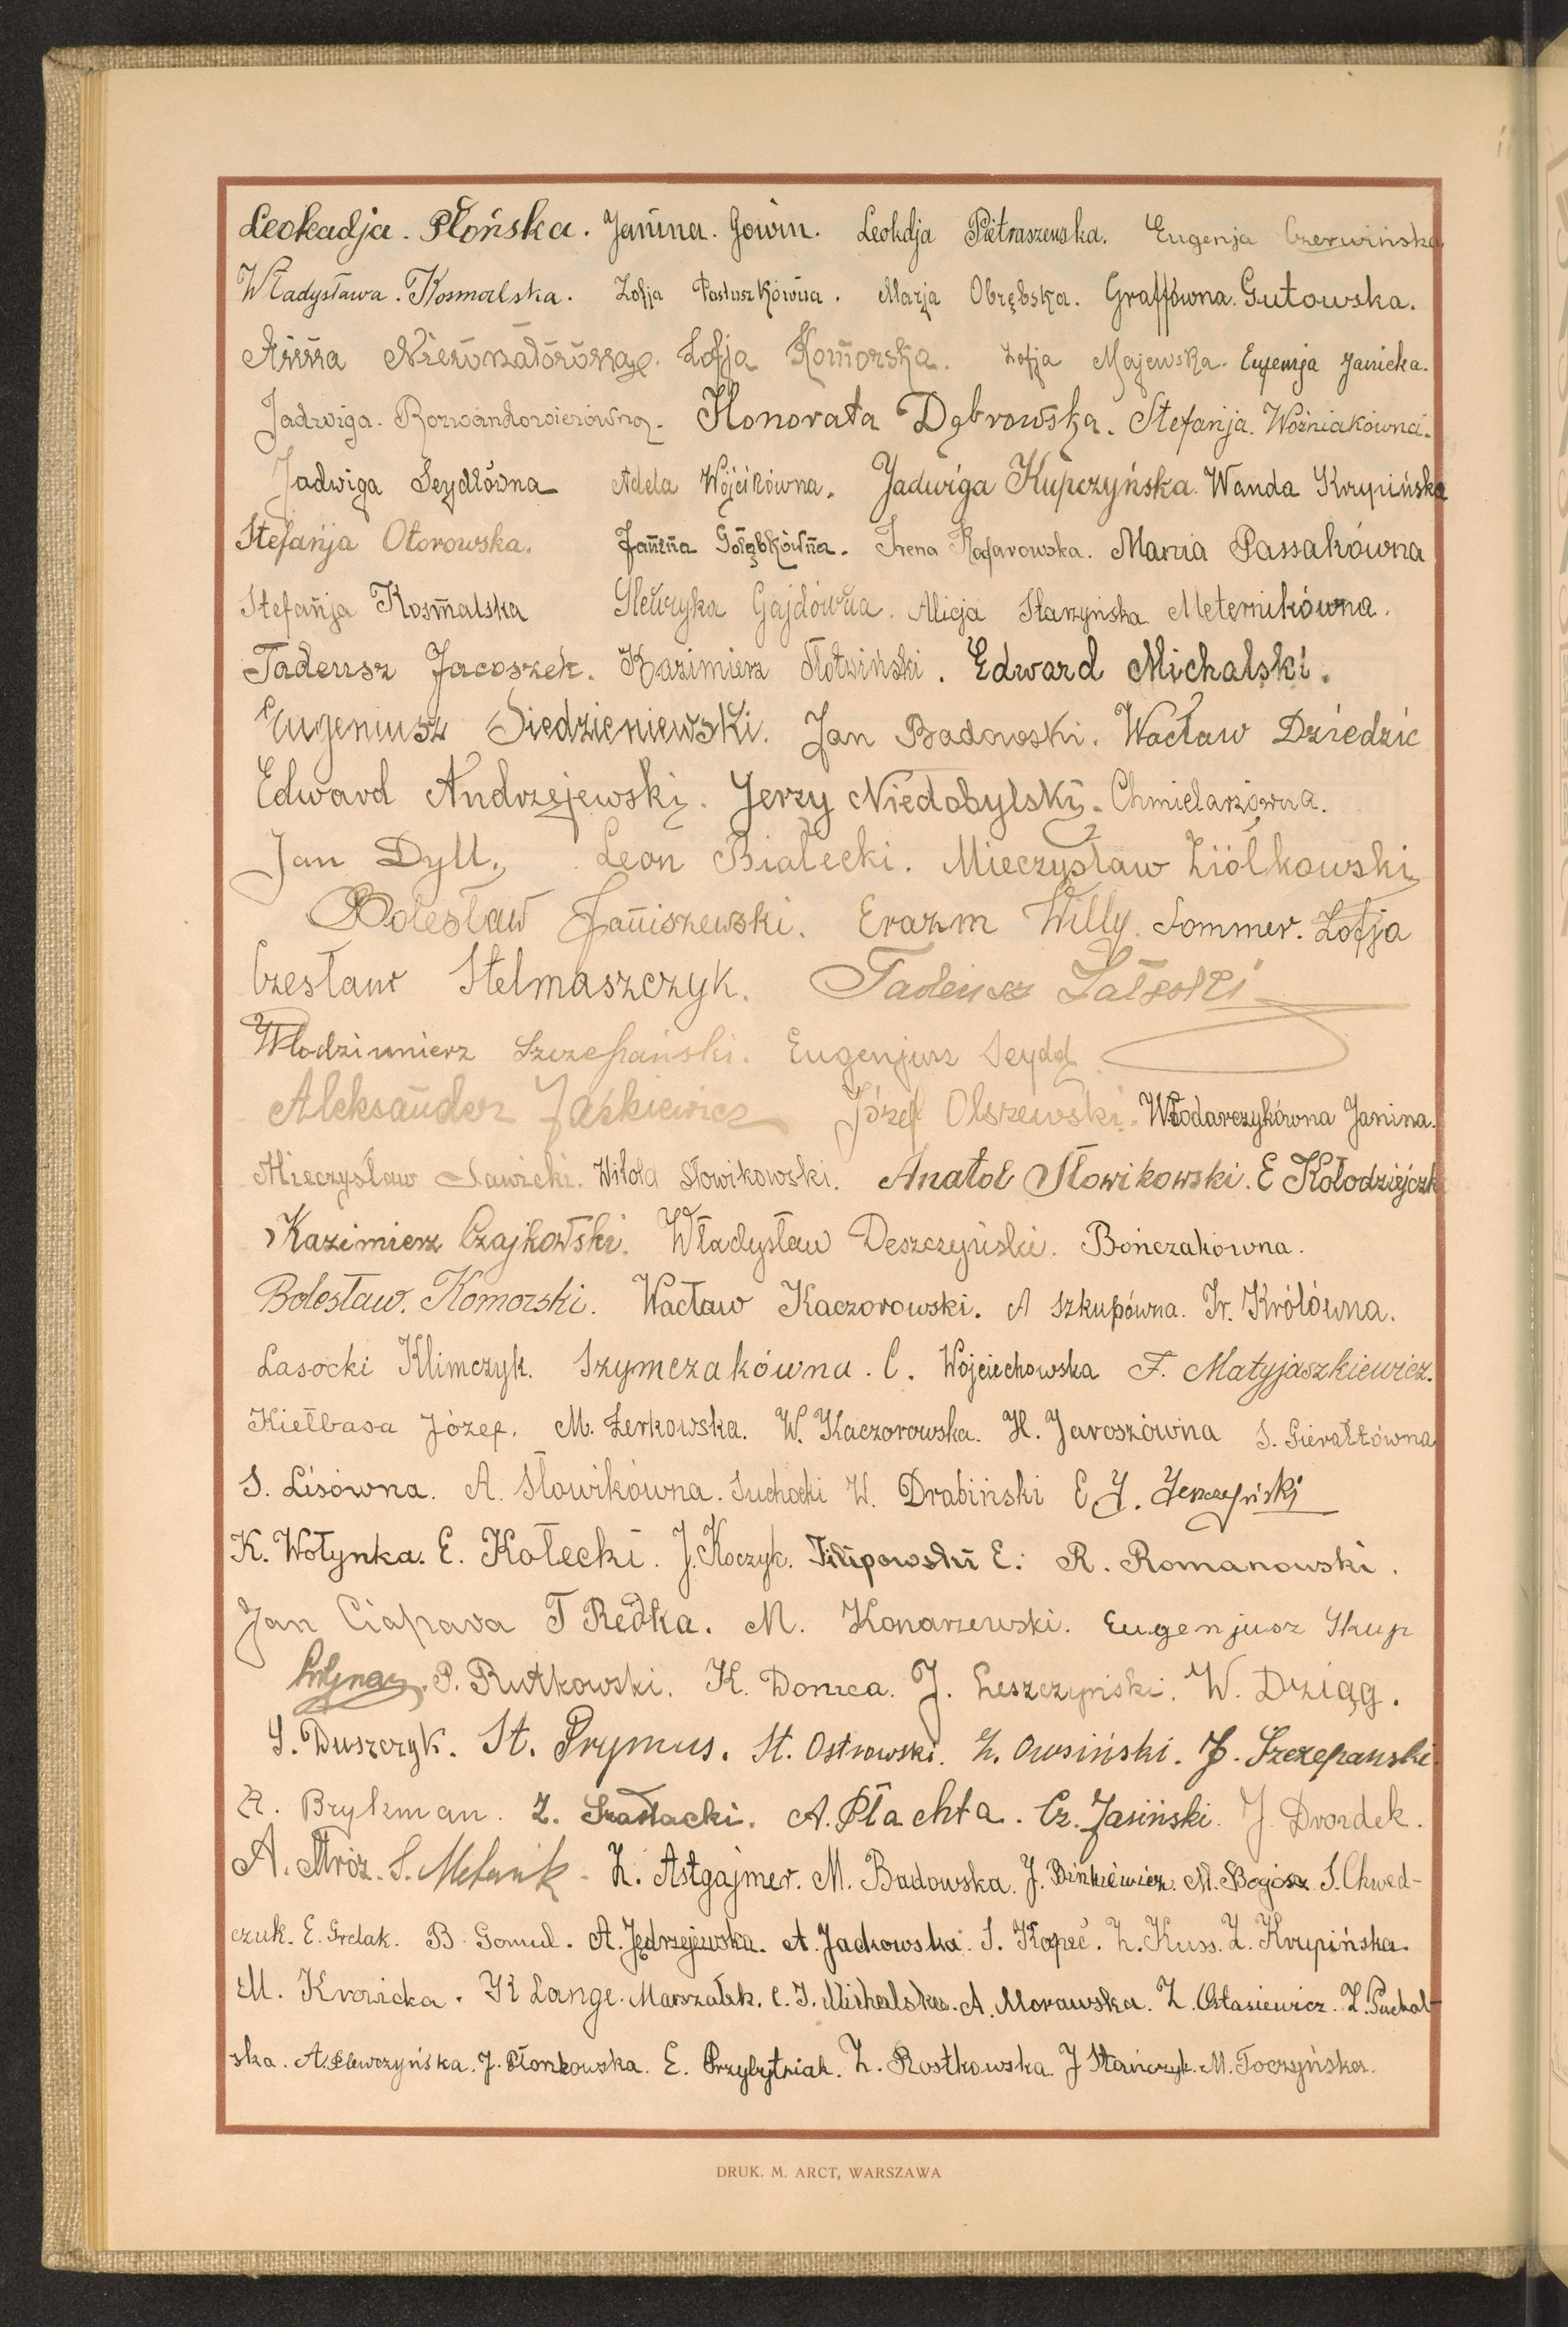 Leokadja. Płońska. Janina. Gowin. Leokdja Pietraszewska. Eugenja Czerwińska
Władysława. Kosmalska. Zofja Pastuszkówna. Marja Obrębska. Graffówna. Gutowska.
Anna Zofja Komorska. Zofja Majewska. Eugenja Janicka.
Jadwiga. Honorata Dąbrowska. Stefanja. Woźniakówna.
Jadwiga Seydlówna Adela Wójcikówna. Jadwiga Kupczyńska. Wanda Krupińska
Stefanja Otorowska. Janina Gołąbkówna. Irena Rafarowska. Marja Passakówna
Stefanja Kosmalska Henryka Gajdówna. Alicja Starzyńska Meternikówna.
Tadeusz Jacoszek. Kazimierz Słotwiński. Edward Michalski.
Eugeniusz Siedzieniewski. Jan Badowski. Wacław Dziedzic
Edward Andrzejewski. Jerzy Niedobylski. Chmielarzówna.
Jan Dyll. Leon Białecki. Mieczysław Ziółkowski
Bolesław Janiszewski. Erazm Willy. Sommer. Zofja
Czesław Stelmaszczyk. Tadeusz
Włodzimierz Szczepański. Eugenjusz Seydel
Aleksander Jaśkiewicz Józef Olszewski. Włodarczykówna Janina.
Mieczysław Sawicki. Witold Słowikowski. Anatol Słowikowski. E Kołodziejczk
Kazimierz Czajkowski. Władysław Deszczyński. Bończakówna.
Bolesław. Komorski. Wacław Kaczorowski. A Szkupówna. Ir. Królówna.
Lasocki Klimczyk. Szymczakówna. C. Wojciechowska F. Matyjaszkiewicz.
Kiełbasa Józef. M. Żerkowska. W. Kaczorowska. H. Jaroszówna S. Gierałtówna
S. Lisówna. A. Słowikówna. Suchocki W. Drabiński E J.
K. Wołynka. E. Kołecki. J. Koczyk. Filipowski E. R. Romanowski.
Jan Ciapara T Redka. M. Konarzewski. Eugenjusz Skup
P. Rutkowski. K. Donica. J. Leszczyński. W. Dziąg.
S. Duszczyk. St. Prymus. St. Ostrowski. Z. Owsiński. J. Szczepanski.
Brykman. Z. Szadacki. A. Płachta. Cz. Jasiński. J. Dvordek.
A. Mróz. S. Meternik. Z. Astgajmer. M. Badowska. J. Binkiewicz. M. Bogosz. S. Chwed-
czuk. E. Grelak. B. Gomul. A. Jędrzejewska. A. Jackowska. S. Kopeć. Z. Kuss. Z. Krupińska.
M. Krowicka. K Lange. Marszałek. C. J. Michalska. A. Morawska. Z. Ostasiewicz. Z. Puchal-
ska. A. Plewczyńska. J. Płonkowska. E. Przybytniak. Z. Rostkowska. J Stańczyk. M. Toczyńska.
DRUK. M. ARCT, WARSZAWA